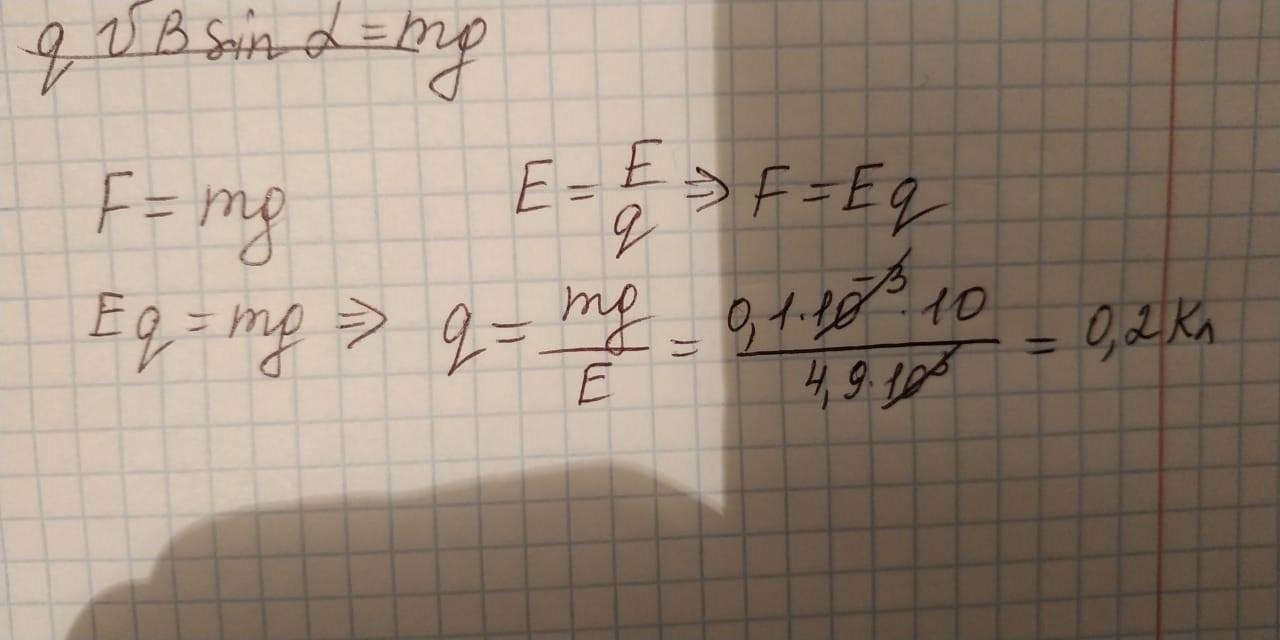 q υ B sin α = mg
F = mg E = E/q ⇒ F = Eq
Eq = mg ⇒ q = mg/E = 0,1·10⁻³·10/4,9·10³ = 0,2 Кл